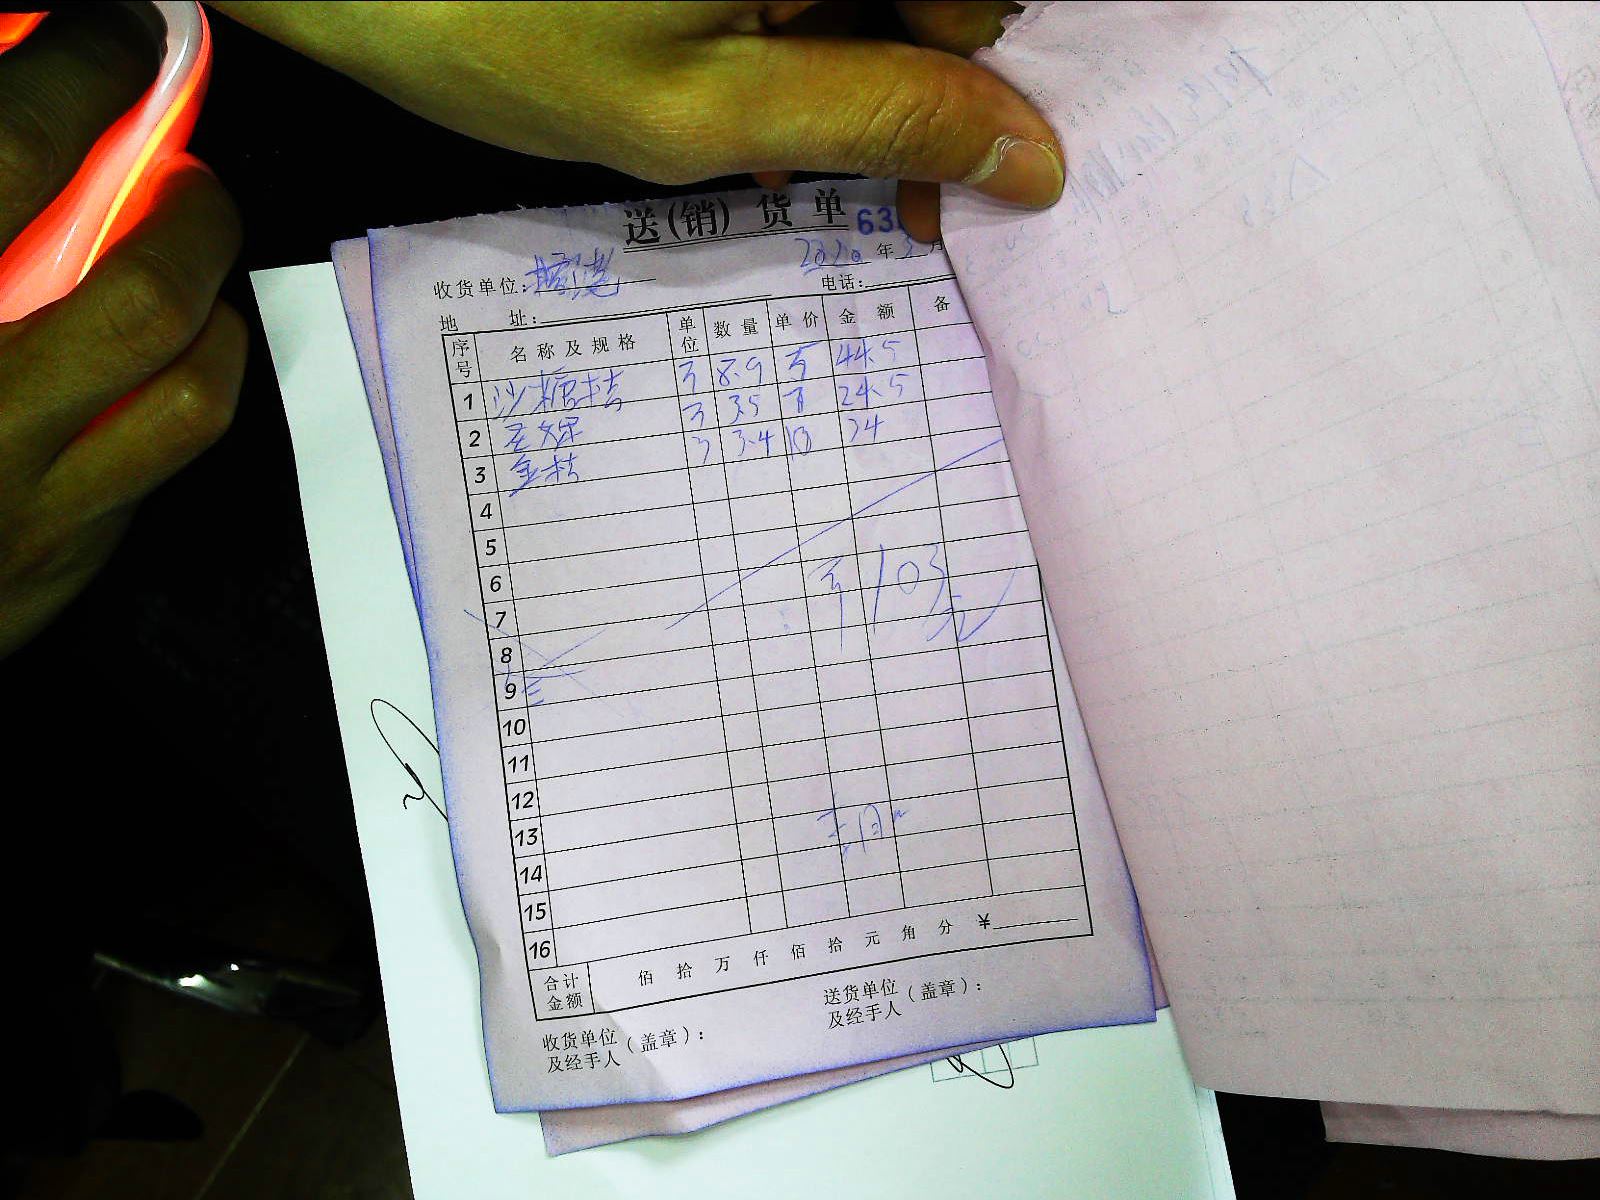 送(销)货单 63
2020年3月
收货单位：
电话：
地 址：
序号 名称及规格 单位 数量 单价 金额 备
1 沙糖桔 斤 8.9 5 44.5
2 圣女果 斤 3.5 7 24.5
3 金桔 斤 3.4 10 34
4
5
6 103元
7
8
9
10
11
12
13
14
15
16
合计金额 佰 拾 万 仟 佰 拾 元 角 分 ¥
收货单位及经手人（盖章）：
送货单位及经手人（盖章）：